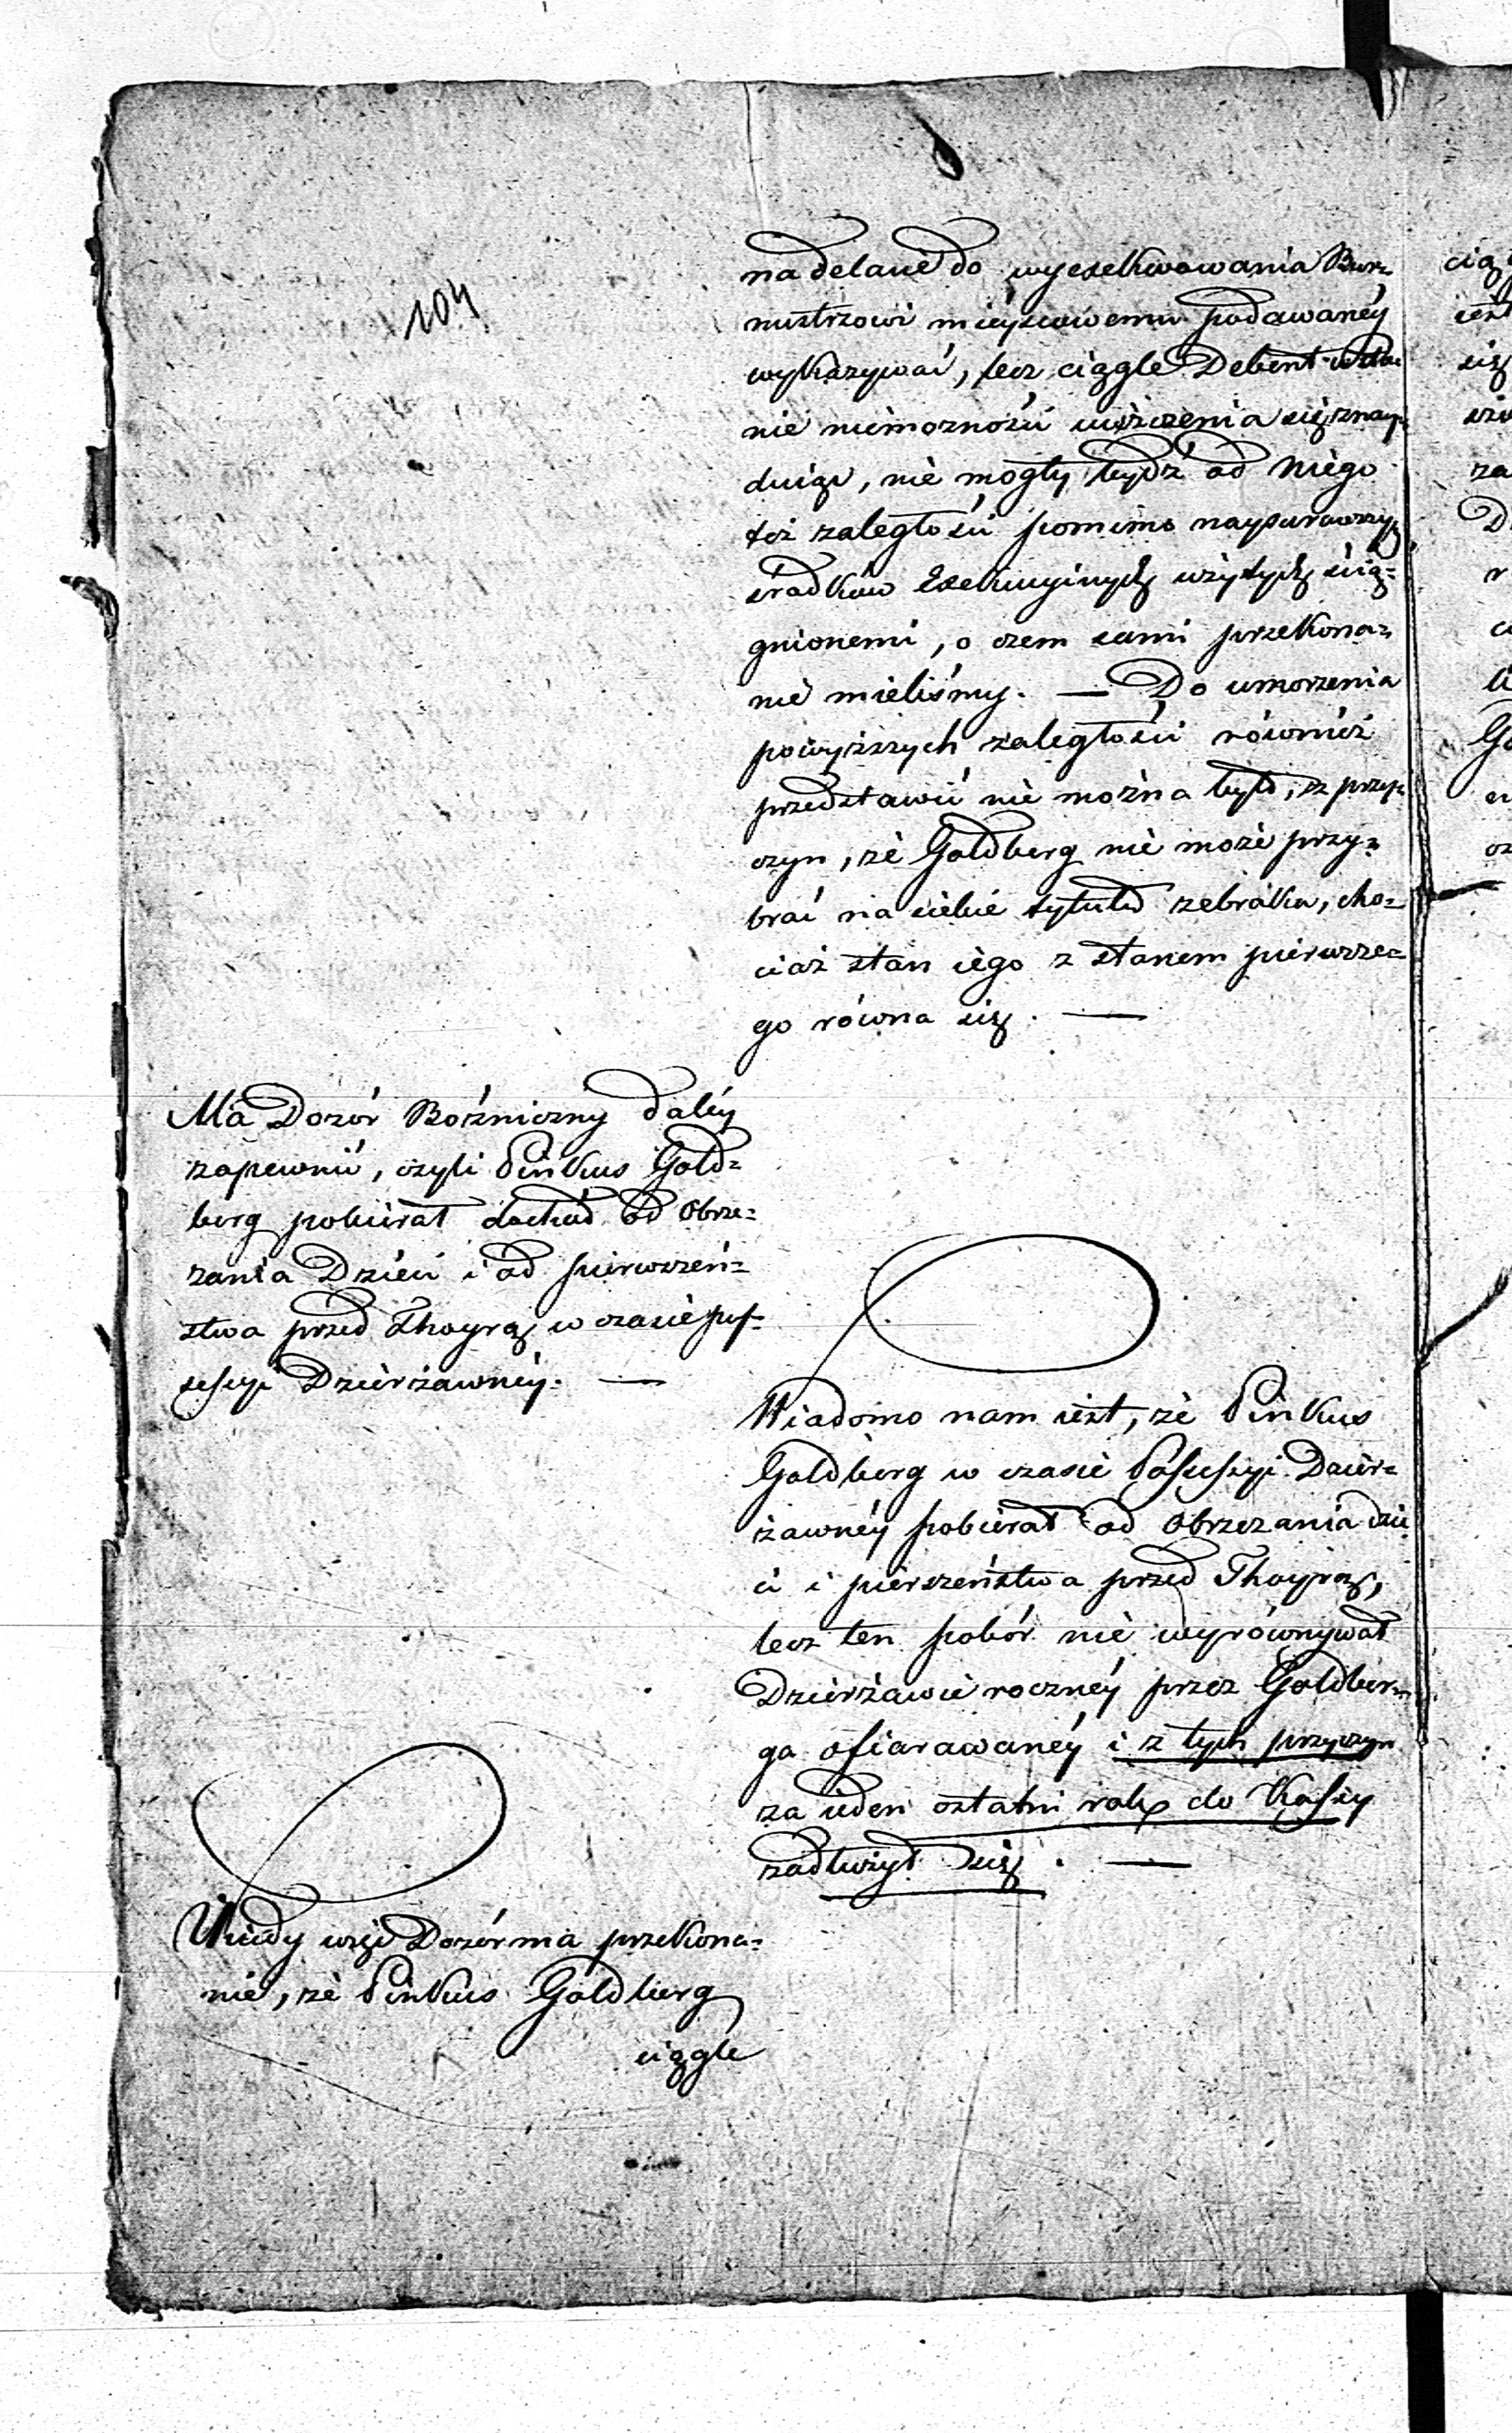 104
nadelane do wyexekwowania Bur=
mistrzowi mieyscowemu podawaney
wykazywać, lecz ciągle Debent w sta
nie niemożności uiszczenia się znay=
duiąc, nie mogły bydź od niego
też zaległości pomimo naysurowszych
śrádków Exekucyinych użytych ścią=
gnionemi, o czem sami przekona=
nie mieliśmy. — Do umorzenia
powyższych zaległości również
przedstawić nie można było, z przy=
czyn, że Goldberg nie może przy=
brać na siebie tytułu żebráka, cho=
ciaż stan iego z stanem pierwsze=
go równa się. —
Ma Dozór Bożniczny daléy
zapewnić, czyli Pinkus Gold=
berg pobierał dochód od Obrze=
zania Dzieci i od pierwszeń=
stwa przed Thoyrą w czasie pos=
sessyi Dzierżawnéy. —
Wiadomo nam iest, że Pinkus
Goldberg w czasie Possessyi Dzier=
żawnéy pobierał od Obrzezania dzie
ci i pierszeństwa przed Thoyrą,
lecz ten pobór nie wyrównywał
Dzierżawie rocznéy przez Goldber=
ga ofiarawanéy i z tych przyczyn
za ieden ostatni rok do Kassy
zadłużył się. —
Kiedy więc Dozór ma przekona=
nie, że Pinkus Goldberg
ciągle